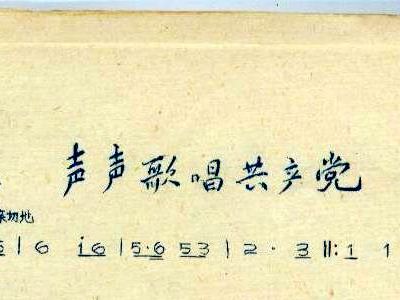 声声歌唱共产党
亲切地
5 | 6 i6 | 5·6 53 | 2· 3 ‖: 1 1